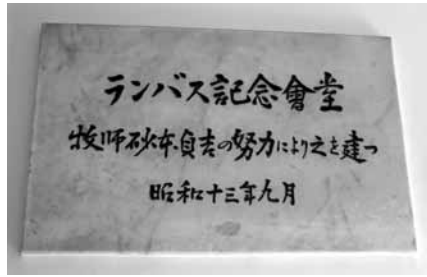 ランバス記念會堂
牧師砂本貞吉の努力により之を建つ
昭和十三年九月